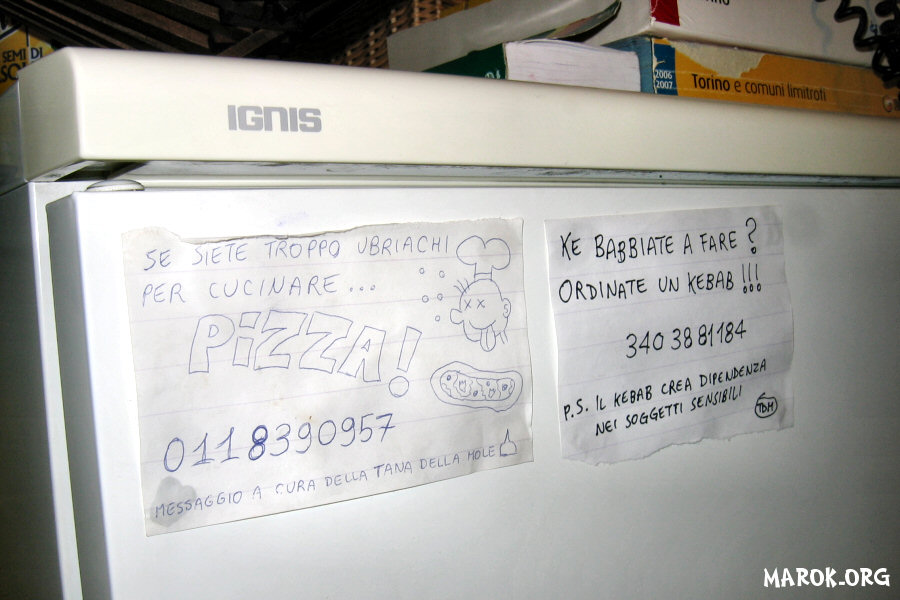 SEMI DI
2006
2007
Torino e comuni limitrofi
IGNIS
SE SIETE TROPPO UBRIACHI
PER CUCINARE...
PIZZA!
0118390957
MESSAGGIO A CURA DELLA TANA DELLA MOLE
KE BABBIATE A FARE?
ORDINATE UN KEBAB!!!
340 3881184
P.S. IL KEBAB CREA DIPENDENZA
NEI SOGGETTI SENSIBILI
TDM
MAROK.ORG